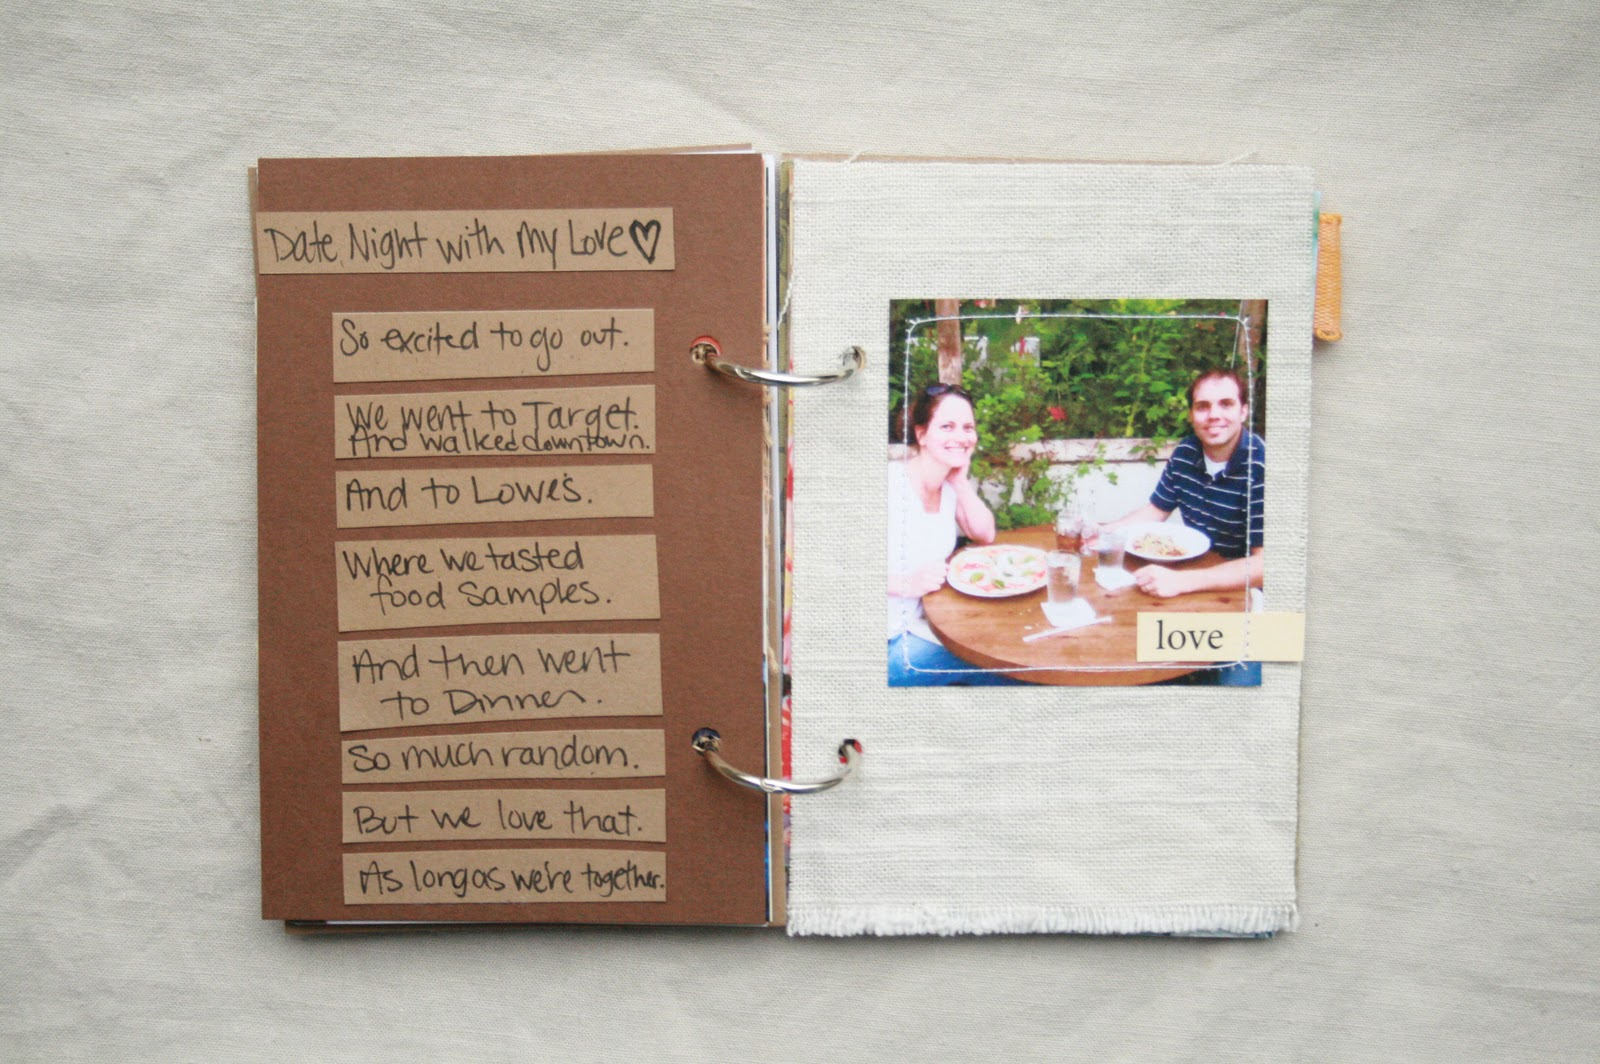 Date Night with My Love ♡
So excited to go out.
We went to Target.
And walked downtown.
And to Lowe's.
Where we tasted
food samples.
And then went
to Dinner.
So much random.
But we love that.
As long as we're together.
love